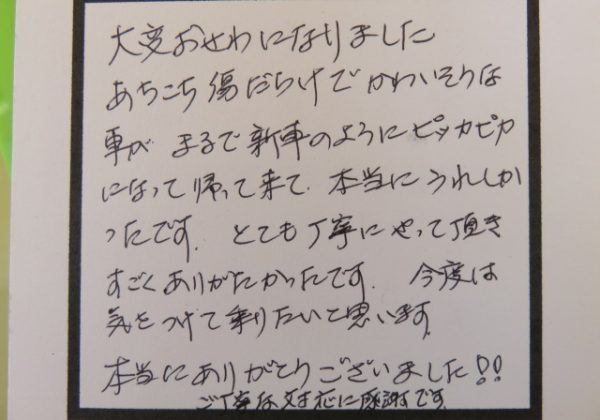 大変おせわになりました
あちこち傷だらけでかわいそうな
車が まるで新車のようにピッカピカ
になって帰って来て、本当にうれしか
ったです。とても丁寧にやって頂き
すごくありがたかったです。今度は
気をつけて乗りたいと思います。
本当にありがとうございました!!
ご丁寧な対応に感謝です